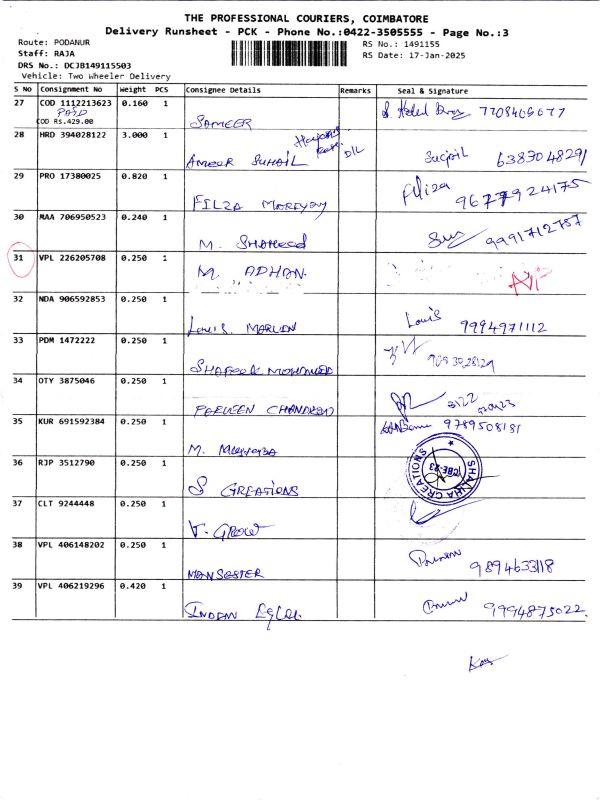 THE PROFESSIONAL COURIERS, COIMBATORE
Delivery Runsheet - PCK - Phone No.:0422-3505555 - Page No.:3
Route: PODANUR
RS No.: 1491155
Staff: RAJA
RS Date: 17-Jan-2025
DRS No.: DCJB149115503
Vehicle: Two Wheeler Delivery
S No Consignment No Weight PCS Consignee Details Remarks Seal & Signature
27 COD 1112213623 0.160 1
PAID
COD Rs.429.00
SAMEER
28 HRD 394028122 3.000 1
AMEER SUHAIL D/L 6383048291
29 PRO 17380025 0.820 1
FILZA Filiza 9677924175
30 MAA 706950523 0.240 1
M. 9991712757
31 VPL 226205708 0.250 1
M. ADHAN.
32 NDA 906592853 0.250 1
Louis. MARLEN Louis 9994971112
33 PDM 1472222 0.250 1
SHAFEEK MOHAMMED
34 OTY 3875046 0.250 1
3122
35 KUR 691592384 0.250 1
M. 9789508181
36 RJP 3512790 0.250 1
S CREATIONS
SHANHA CREATIONS
CBE-23
37 CLT 9244448 0.250 1
V. GROW
38 VPL 406148202 0.250 1
MANSESTER 9894633118
39 VPL 406219296 0.420 1
INDIAN 9994875022